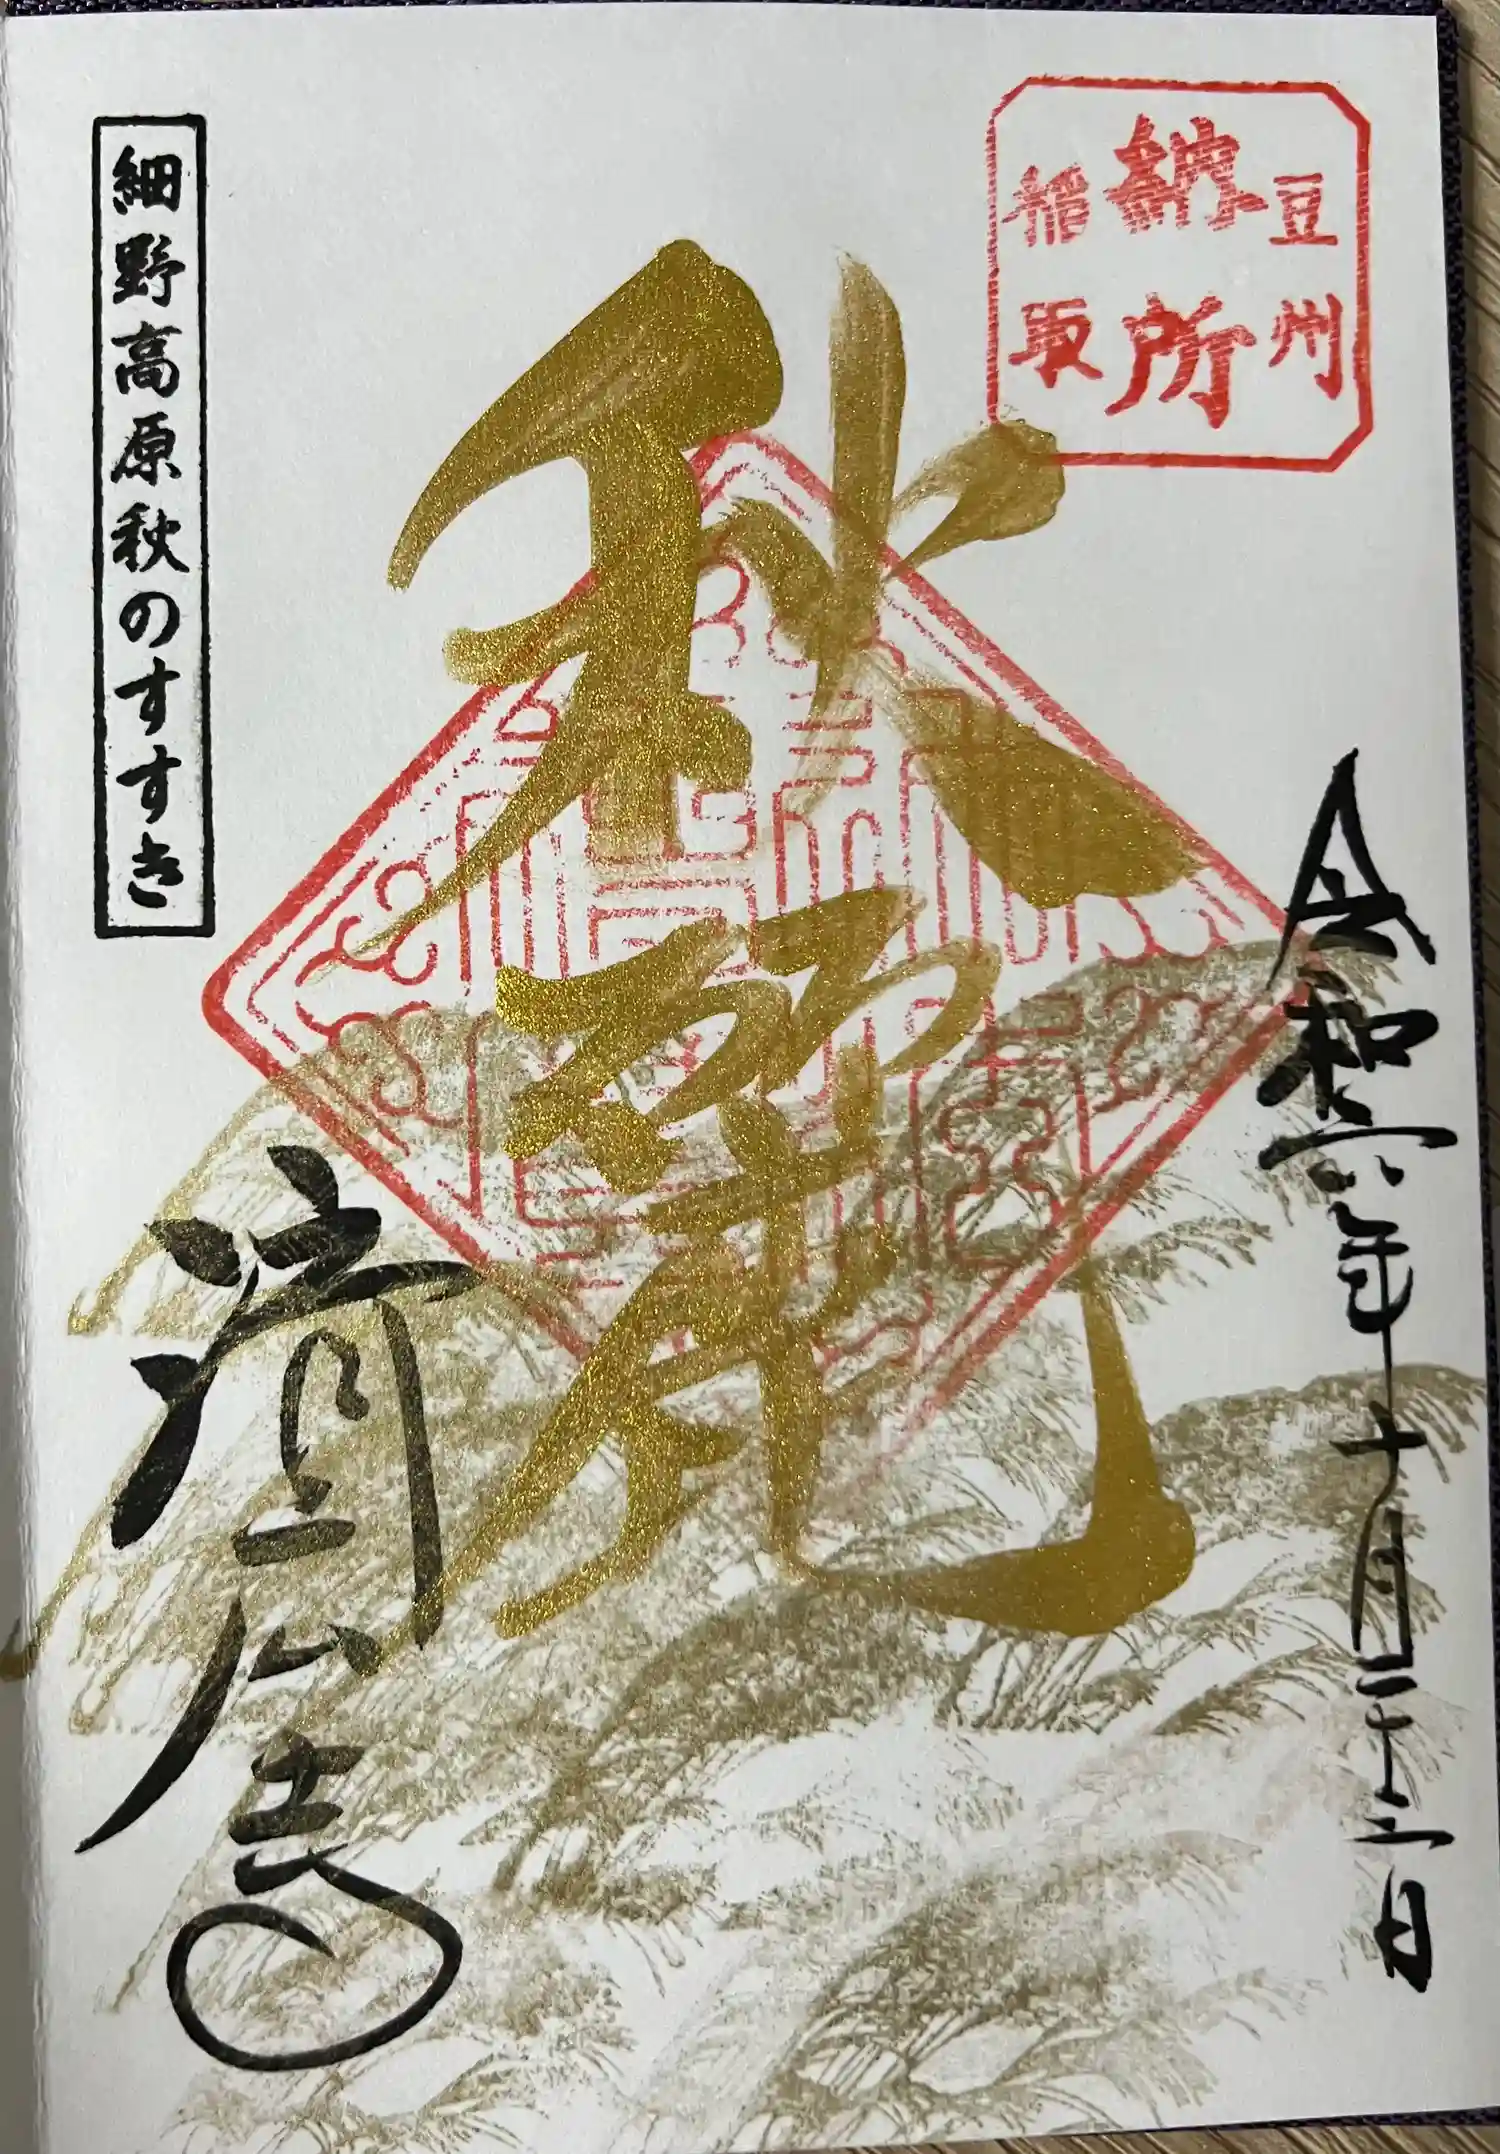 豆州
納所
稲取
令和六年十月二十二日
秋麗
済広寺
細野高原秋のすすき